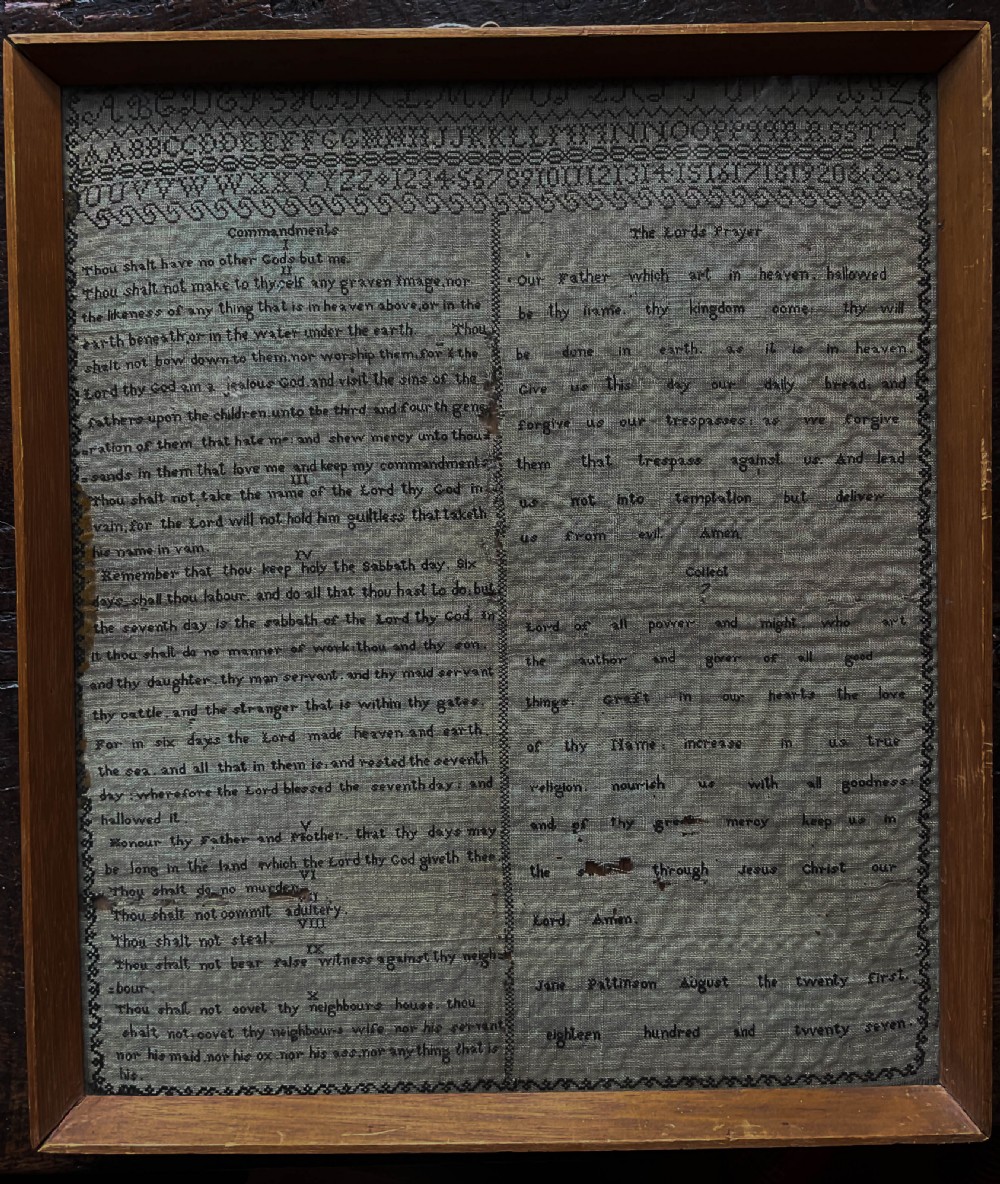 AABBCCDDEEFFGGHHJJKKLLMMNNOOPPQQRRSSTT
UUVVWWXXYYZZ 1234567891011121314151617181920&&
Commandments
I
Thou shalt have no other Gods but me.
II
Thou shalt not make to thyself any graven Image, nor
the likeness of any thing that is in heaven above, or in the
earth beneath, or in the water under the earth Thou
shalt not bow down to them, nor worship them, for I the
Lord thy God am a jealous God, and visit the sins of the
fathers upon the children, unto the third and fourth gene
-ration of them that hate me: and shew mercy unto thou=
=sands in them that love me and keep my commandments
III
Thou shalt not take the name of the Lord thy God in
vain, for the Lord will not hold him guiltless that taketh
his name in vain.
IV
Remember that thou keep holy the Sabbath day. Six
days shall thou labour, and do all that thou hast to do, but
the seventh day is the sabbath of the Lord thy God, in
it thou shalt do no manner of work: thou and thy son,
and thy daughter, thy man servant, and thy maid servant
thy cattle, and the stranger that is within thy gates.
For in six days the Lord made heaven and earth,
the sea, and all that in them is; and rested the seventh
day: wherefore the Lord blessed the seventh day; and
hallowed it.
V
Honour thy Father and Mother, that thy days may
be long in the land which the Lord thy God giveth thee
VI
Thou shalt do no murder
Thou shalt not commit adultery.
VIII
Thou shalt not steal.
IX
Thou shalt not bear false witness against thy neigh
=bour.
X
Thou shall not covet thy neighbours house, thou
shalt not covet thy neighbours wife nor his servant
nor his maid, nor his ox, nor his ass, nor any thing that is
his.
The Lords Prayer
Our Father which art in heaven, hallowed
be thy name, thy kingdom come: thy will
be done in earth, as it is in heaven.
Give us this day our daily bread, and
forgive us our trespasses; as we forgive
them that trespass against us. And lead
us not into temptation but deliver
us from evil. Amen.
Collect
Lord of all power and might who art
the author and giver of all good
things; Graft in our hearts the love
of thy Name, increase in us true
religion, nourish us with all goodness;
and of thy great mercy keep us in
the through Jesus Christ our
Lord, Amen.
Jane Pattinson August the twenty first,
eighteen hundred and twenty seven.